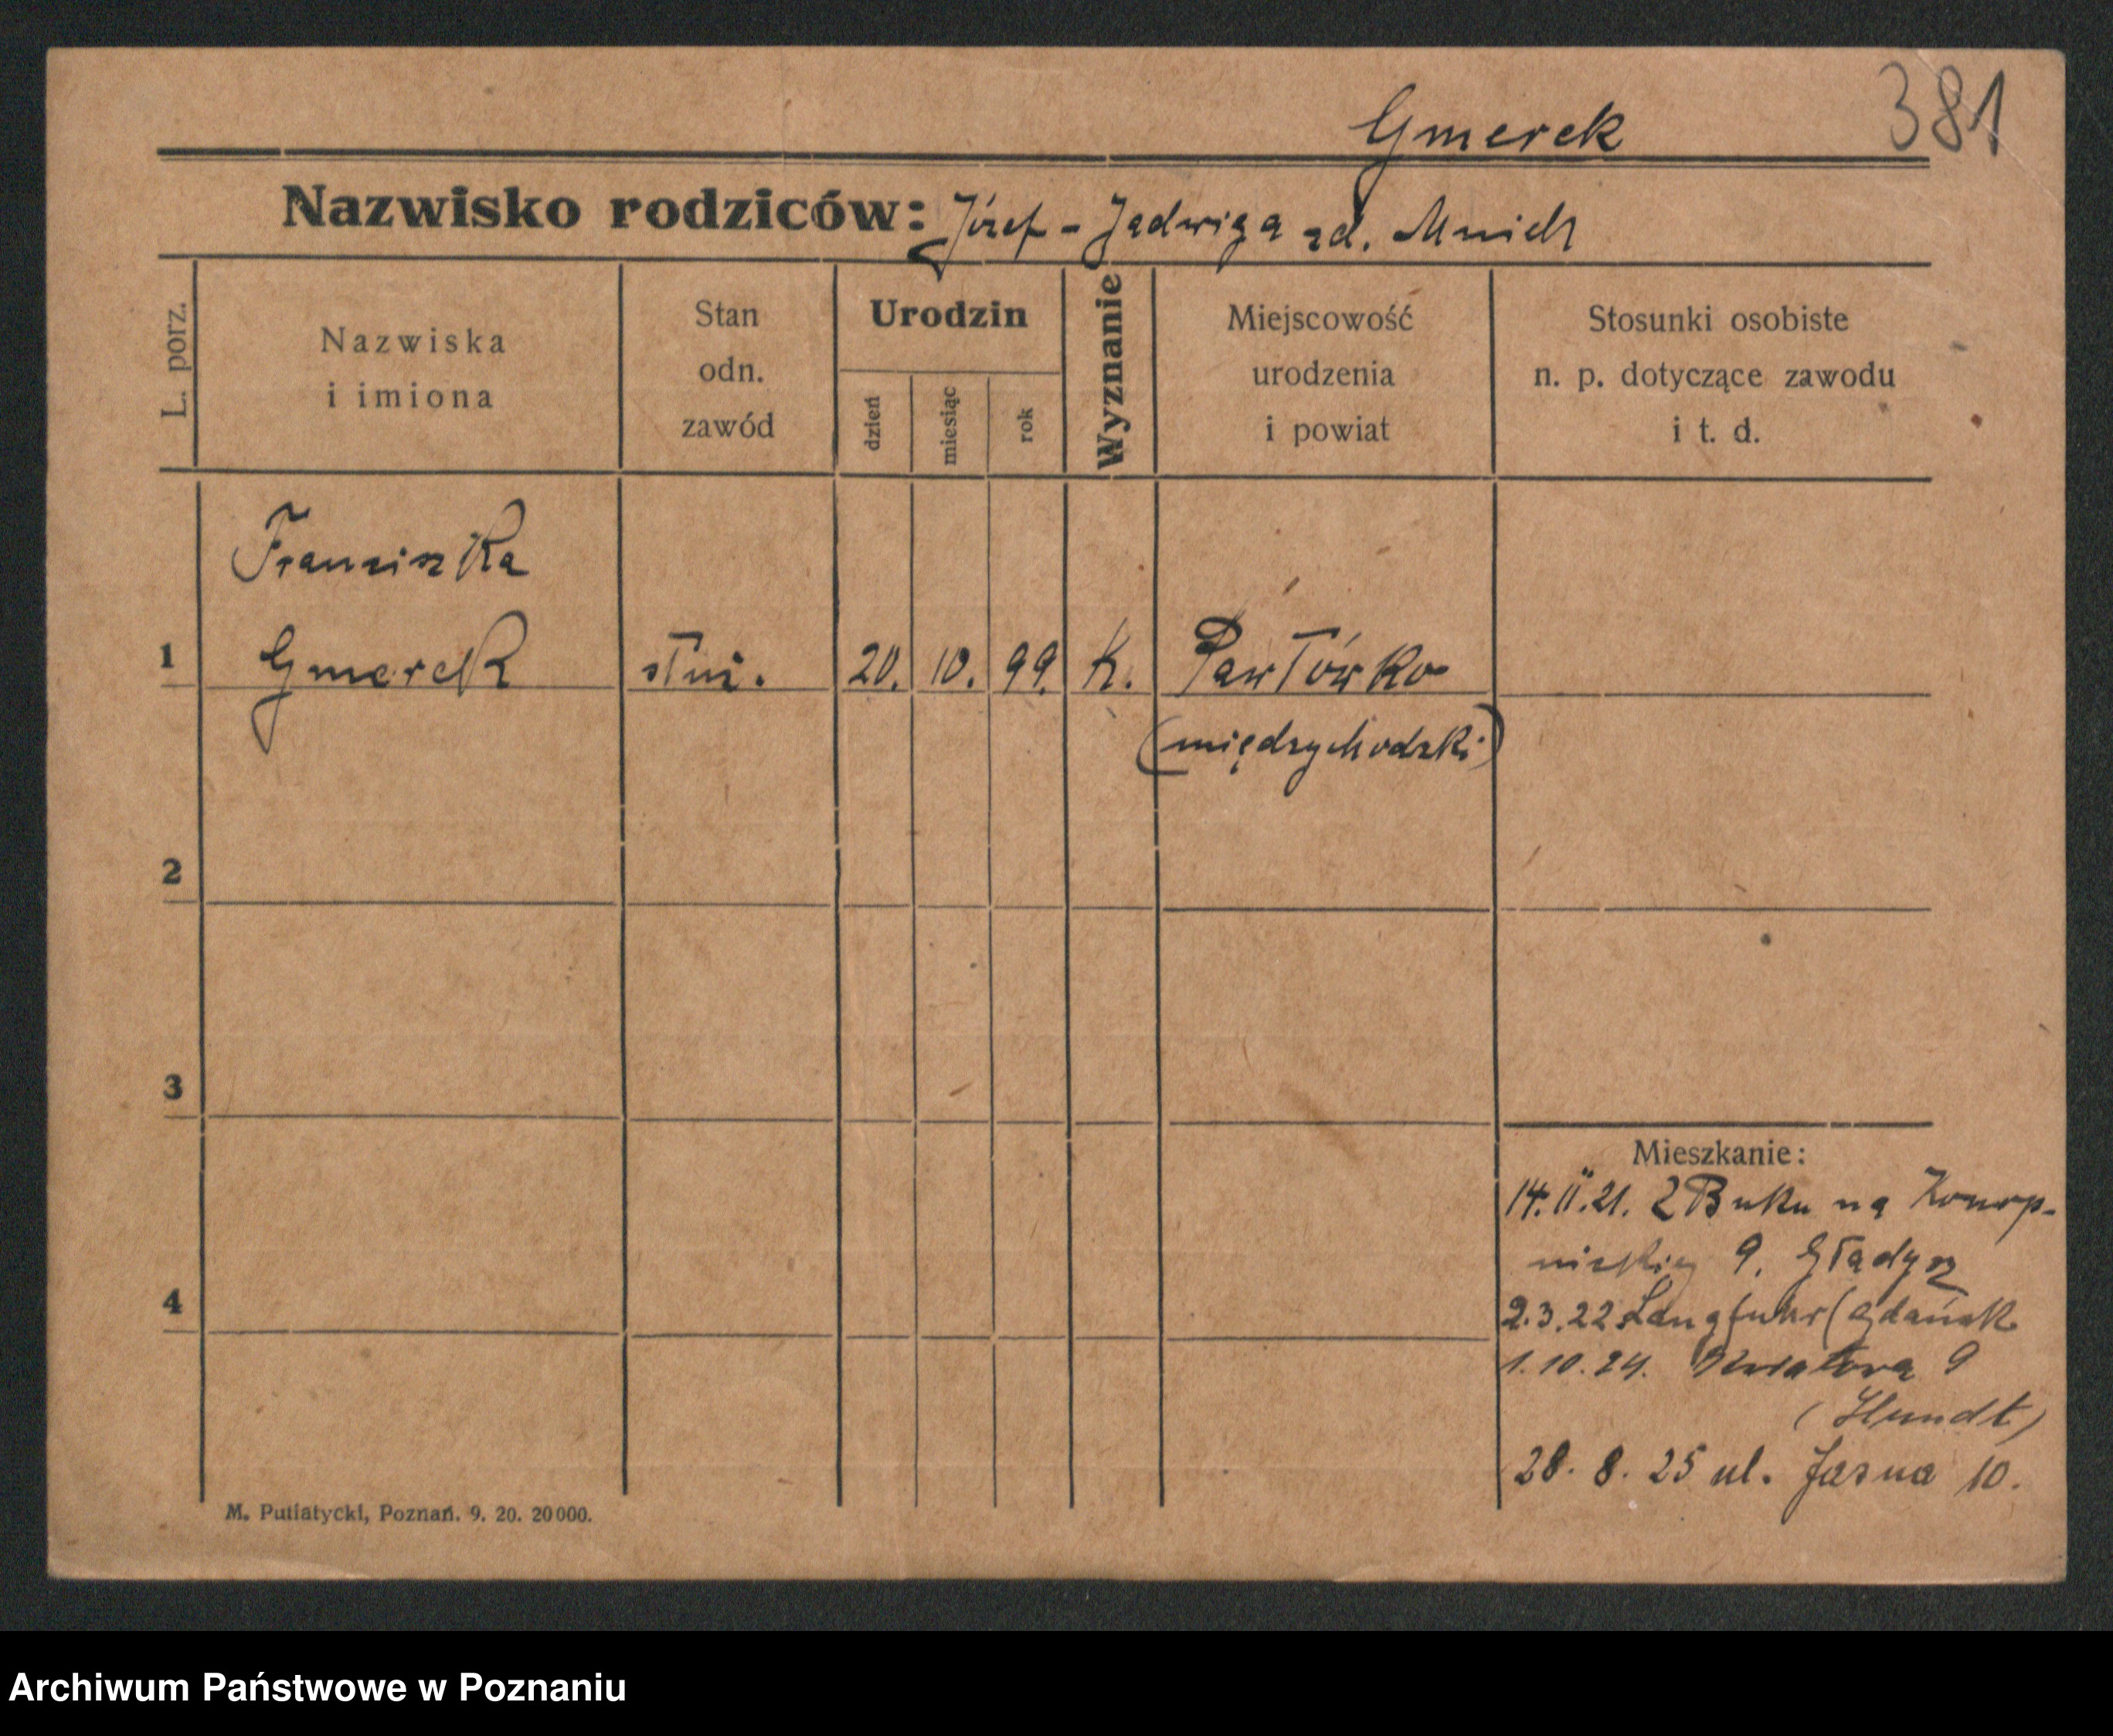 381
Gmerek
Nazwisko rodziców: Józef - Jadwiga zd. Mnich
L. porz.
Nazwiska
i imiona
Stan
odn.
zawód
Urodzin
dzień
miesiąc
rok
Wyznanie
Miejscowość
urodzenia
i powiat
Stosunki osobiste
n. p. dotyczące zawodu
i t. d.
Franciszka
1 Gmerek służ. 20. 10. 99. K. Pawłówko
(międzychodzki)
2
3
4
Mieszkanie:
14.II.21. Z Buku na Konop-
nickiej 9. Gładysz
2.3.22 Langfuhr (Gdańsk
1.10.24. Kwiatowa 9
(Hundt)
28. 8. 25 ul. Jasna 10.
M. Putiatycki, Poznań. 9. 20. 20000.
Archiwum Państwowe w Poznaniu